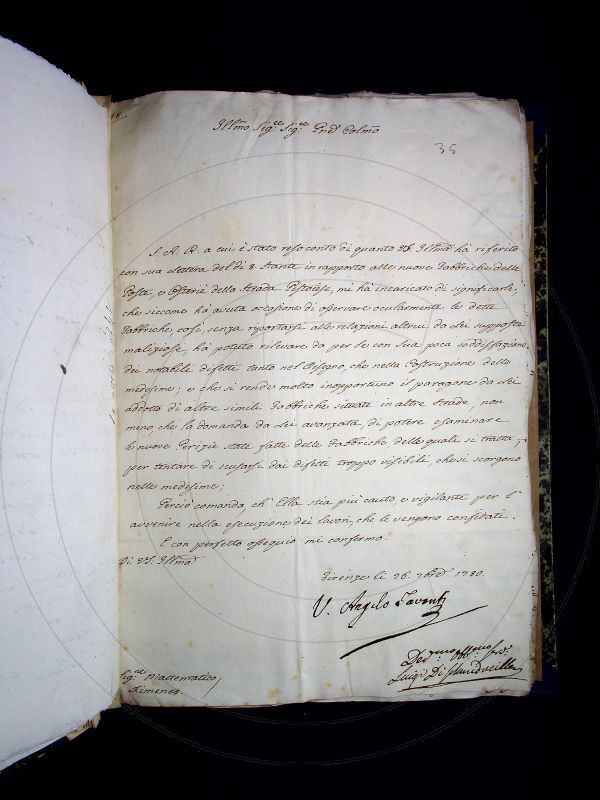 35
Ill.mo Sig.re Sig.re Pne Colmo
S. A. R. a cui è stato reso conto di quanto VS. Illma ha riferito
con sua Lettera del dì 8. Stante in rapporto alle nuove Fabbriche delle
Poste, e Osterie della Strada Pistoiese, mi ha incaricato di significarle,
che siccome ha avuta occasione di osservare ocularmente le dette
Fabbriche così, senza riportarsi alle relazioni altrui da Lei supposte
maliziose, ha potuto rilevare da per se con Sua poca soddisfazione
dei notabili difetti tanto nel disegno, che nella Costruzione delle
medesime; e che si rende molto inopportuno il paragone da Lei
addotto di altre simili Fabbriche situate in altre strade, non
meno, che la domanda da Lei avanzata di potere esaminare
le nuove Perizie state fatte delle Fabbriche, delle quali si tratta
per tentare di scusarsi dai difetti troppo visibili, che si scorgono
nelle medesime;
Perciò comanda, ch' Ella stia più cauto, e vigilante per l'
avvenire nella esecuzione dei lavori, che le vengono confidati.
E con perfetto ossequio mi confermo.
Di VS. Illma
Firenze li 26. 7bre 1780.
V. Angelo Tavanti
Dev.mo Obb.mo Ser.
Luigi Di Schmidveiller
Sig.re Mattematico
Ximenes.